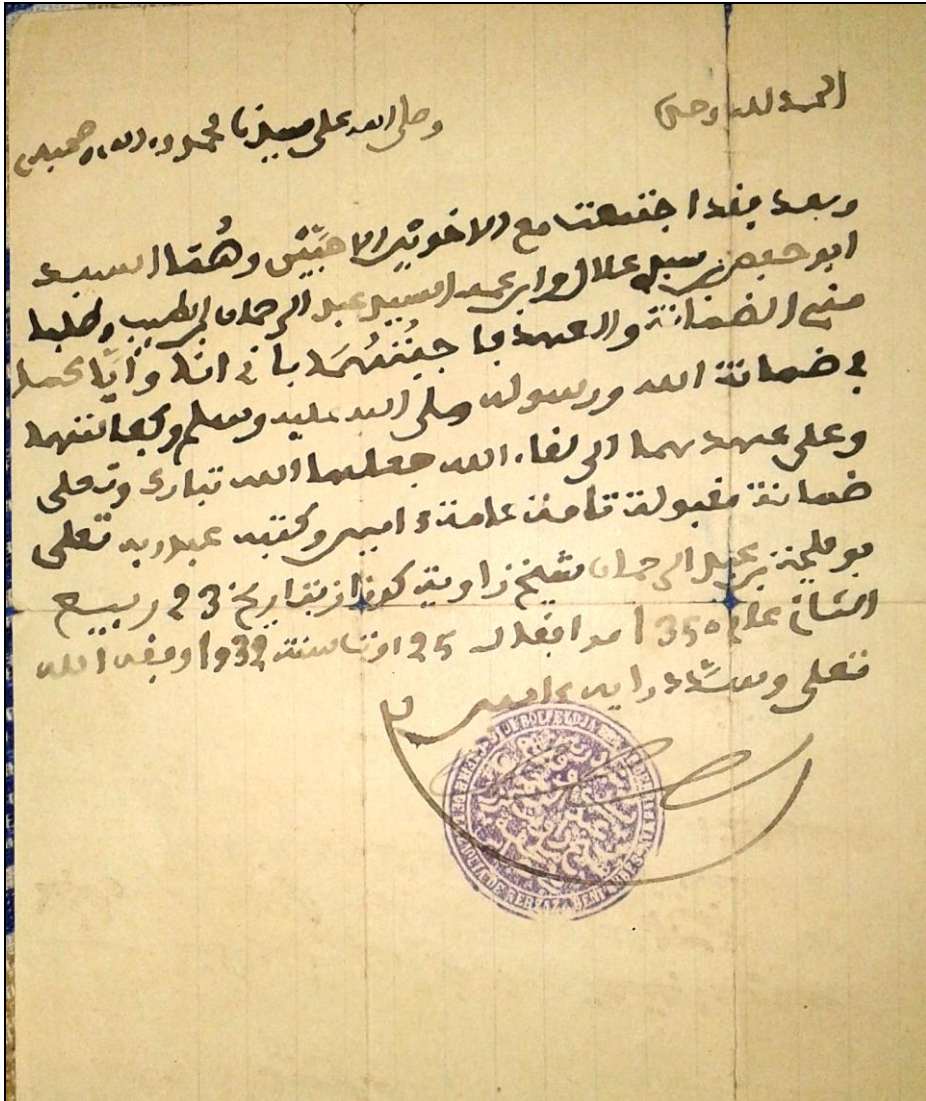 الحمد لله وحده وصلى الله على سيدنا محمد وءاله وصحبه
وبعد فقد اجتمعت مع الاخوين الاحبين وهما السيد
ابو حفص بن سيد علال وابن عمه السيد عبد الرحمان بن الطيب وطلبا
مني الضمانة والعهد فاجبتهما باني انا واياهما
في ضمانة الله ورسوله صلى الله عليه وسلم وكفالتهما
وعلى عهدهما الى لقاء الله جعلها الله تبارك وتعلى
ضمانة مقبولة تامة عامة ءامين وكتبه عبد ربه تعلى
بوفلجة بن عبد الرحمان شيخ زاوية كرزاز بتاريخ 23 ربيع
الثاني عام 1350 موافقا لـ 25 سنة 1932 وفقه الله
تعلى وسدد رايه ءامين
ZAOUIA DE KERZAZ